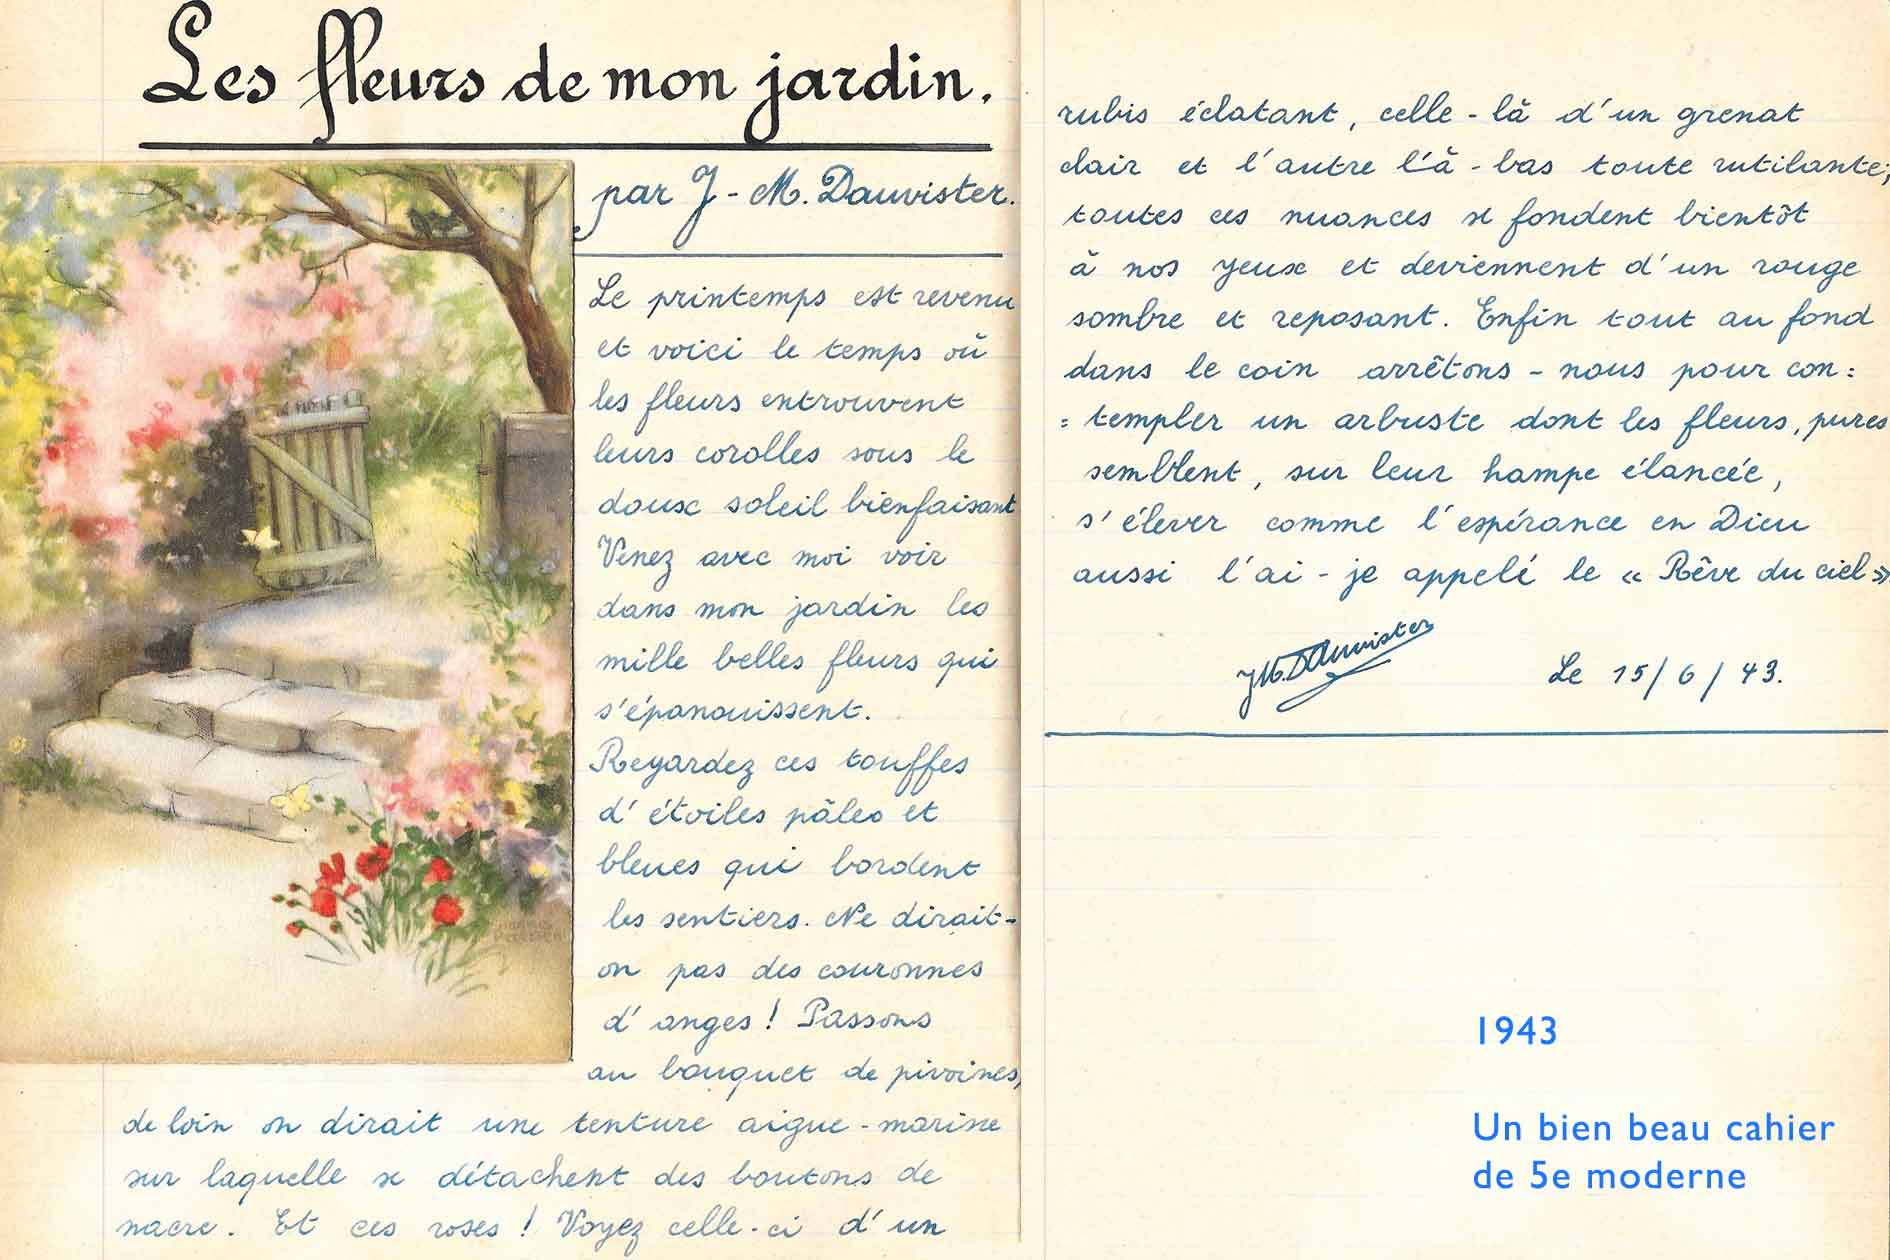 Les fleurs de mon jardin.
par J-M. Dauvister.
Le printemps est revenu
et voici le temps où
les fleurs entrouvent
leurs corolles sous le
doux soleil bienfaisant
Venez avec moi voir
dans mon jardin les
mille belles fleurs qui
s'épanouissent.
Regardez ces touffes
d'étoiles pâles et
bleues qui bordent
les sentiers. Ne dirait-
on pas des couronnes
d'anges ! Passons
au bouquet de pivoines,
de loin on dirait une tenture aigue-marine
sur laquelle se détachent des boutons de
nacre. Et ces roses ! Voyez celle-ci d'un
rubis éclatant, celle-là d'un grenat
clair et l'autre l'à-bas toute rutilante;
toutes ces nuances se fondent bientôt
à nos yeux et deviennent d'un rouge
sombre et reposant. Enfin tout au fond
dans le coin arrêtons-nous pour con=
=templer un arbuste dont les fleurs, pures
semblent, sur leur hampe élancée,
s'élever comme l'espérance en Dieu
aussi l'ai-je appelé le « Rêve du ciel »
JM. Dauvister
Le 15/6/43.
1943
Un bien beau cahier
de 5e moderne